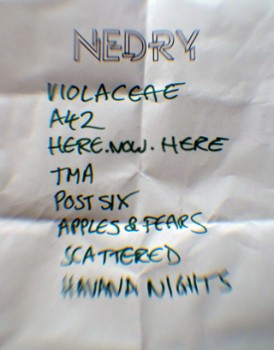 NEDRY
VIOLACEAE
A42
HERE.NOW.HERE
TMA
POST SIX
APPLES & FEARS
SCATTERED
HAVANA NIGHTS